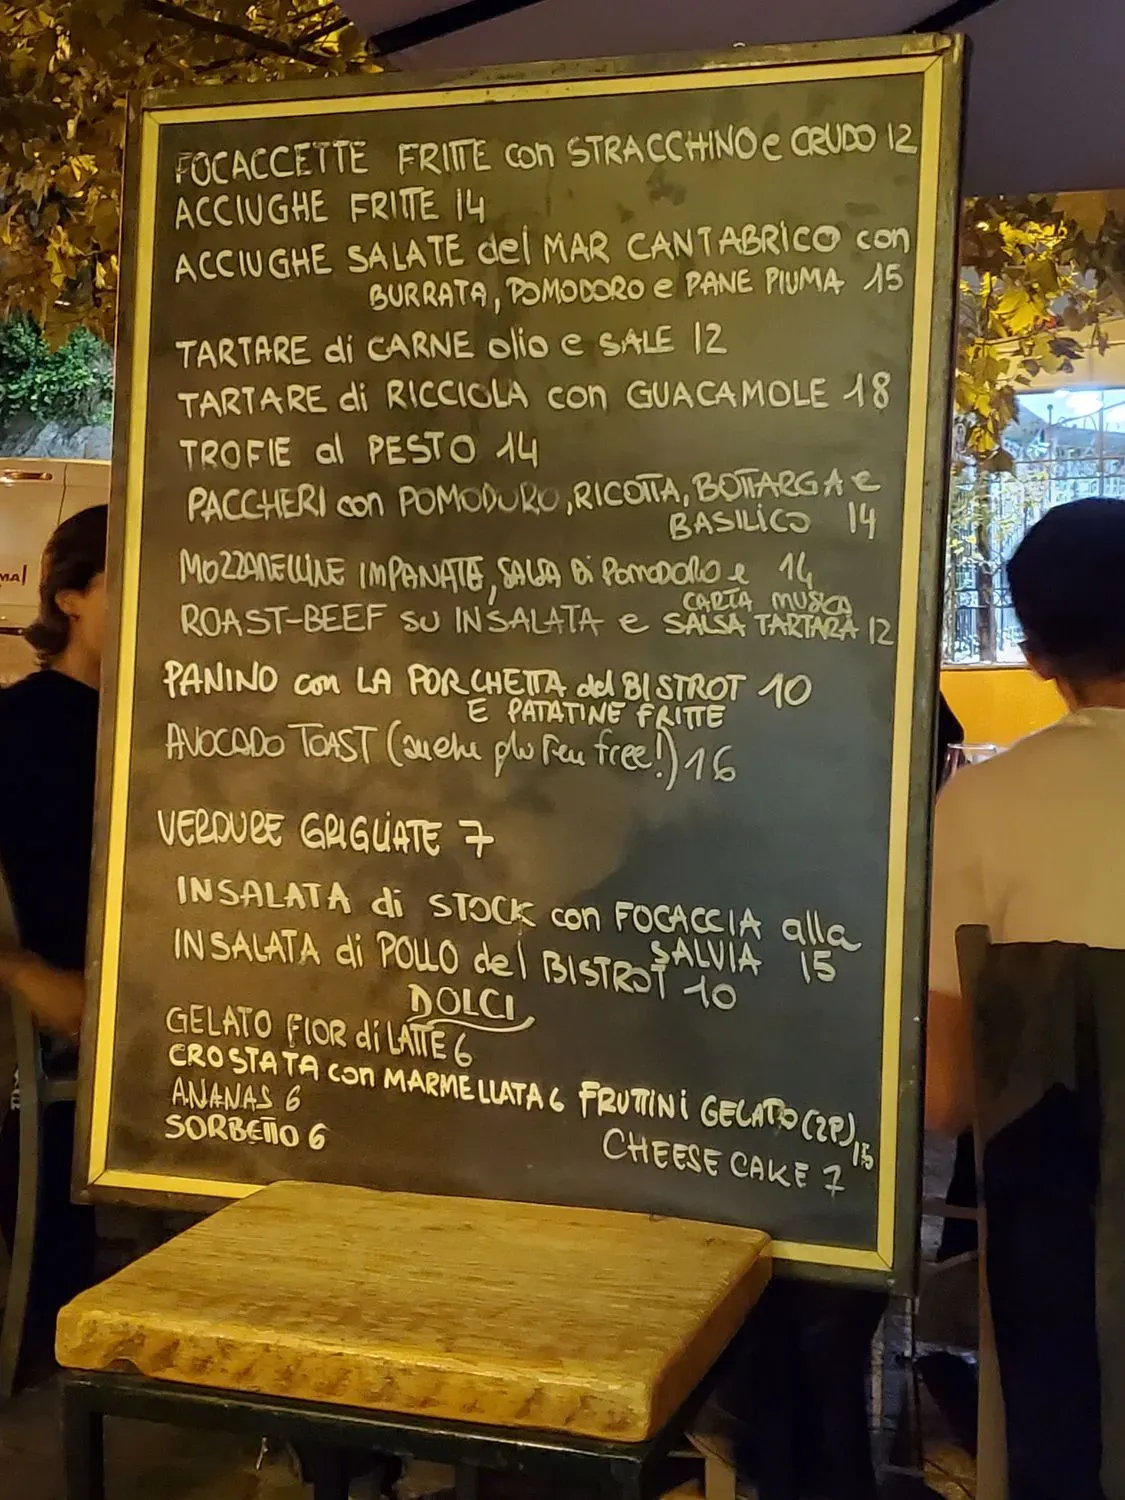 FOCACCETTE FRITTE con STRACCHINO e CRUDO 12
ACCIUGHE FRITTE 14
ACCIUGHE SALATE del MAR CANTABRICO con
BURRATA, POMODORO e PANE PIUMA 15
TARTARE di CARNE olio e SALE 12
TARTARE di RICCIOLA con GUACAMOLE 18
TROFIE al PESTO 14
PACCHERI con POMODORO, RICOTTA, BOTTARGA e
BASILICO 14
MOZZARELLINE IMPANATE, SALSA DI POMODORO e 14
CARTA MUSICA
ROAST-BEEF SU INSALATA e SALSA TARTARA 12
PANINO con LA PORCHETTA del BISTROT 10
E PATATINE FRITTE
AVOCADO TOAST (anche gluten free!) 16
VERDURE GRIGLIATE 7
INSALATA di STOCK con FOCACCIA alla
SALVIA 15
INSALATA di POLLO del BISTROT 10
DOLCI
GELATO FIOR di LATTE 6
CROSTATA con MARMELLATA 6 FRUTTINI GELATO (2P) 15
ANANAS 6
SORBETTO 6
CHEESE CAKE 7